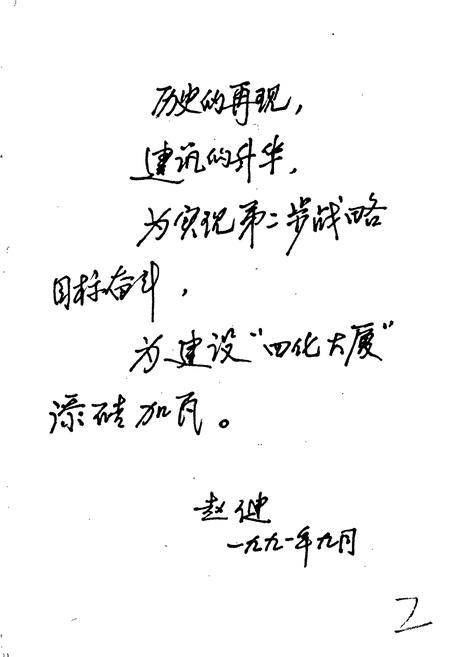 历史的再现，
建筑的升华，
为实现第二步战略
目标奋斗，
为建设“四化大厦”
添砖加瓦。
赵健
一九九一年九月
2